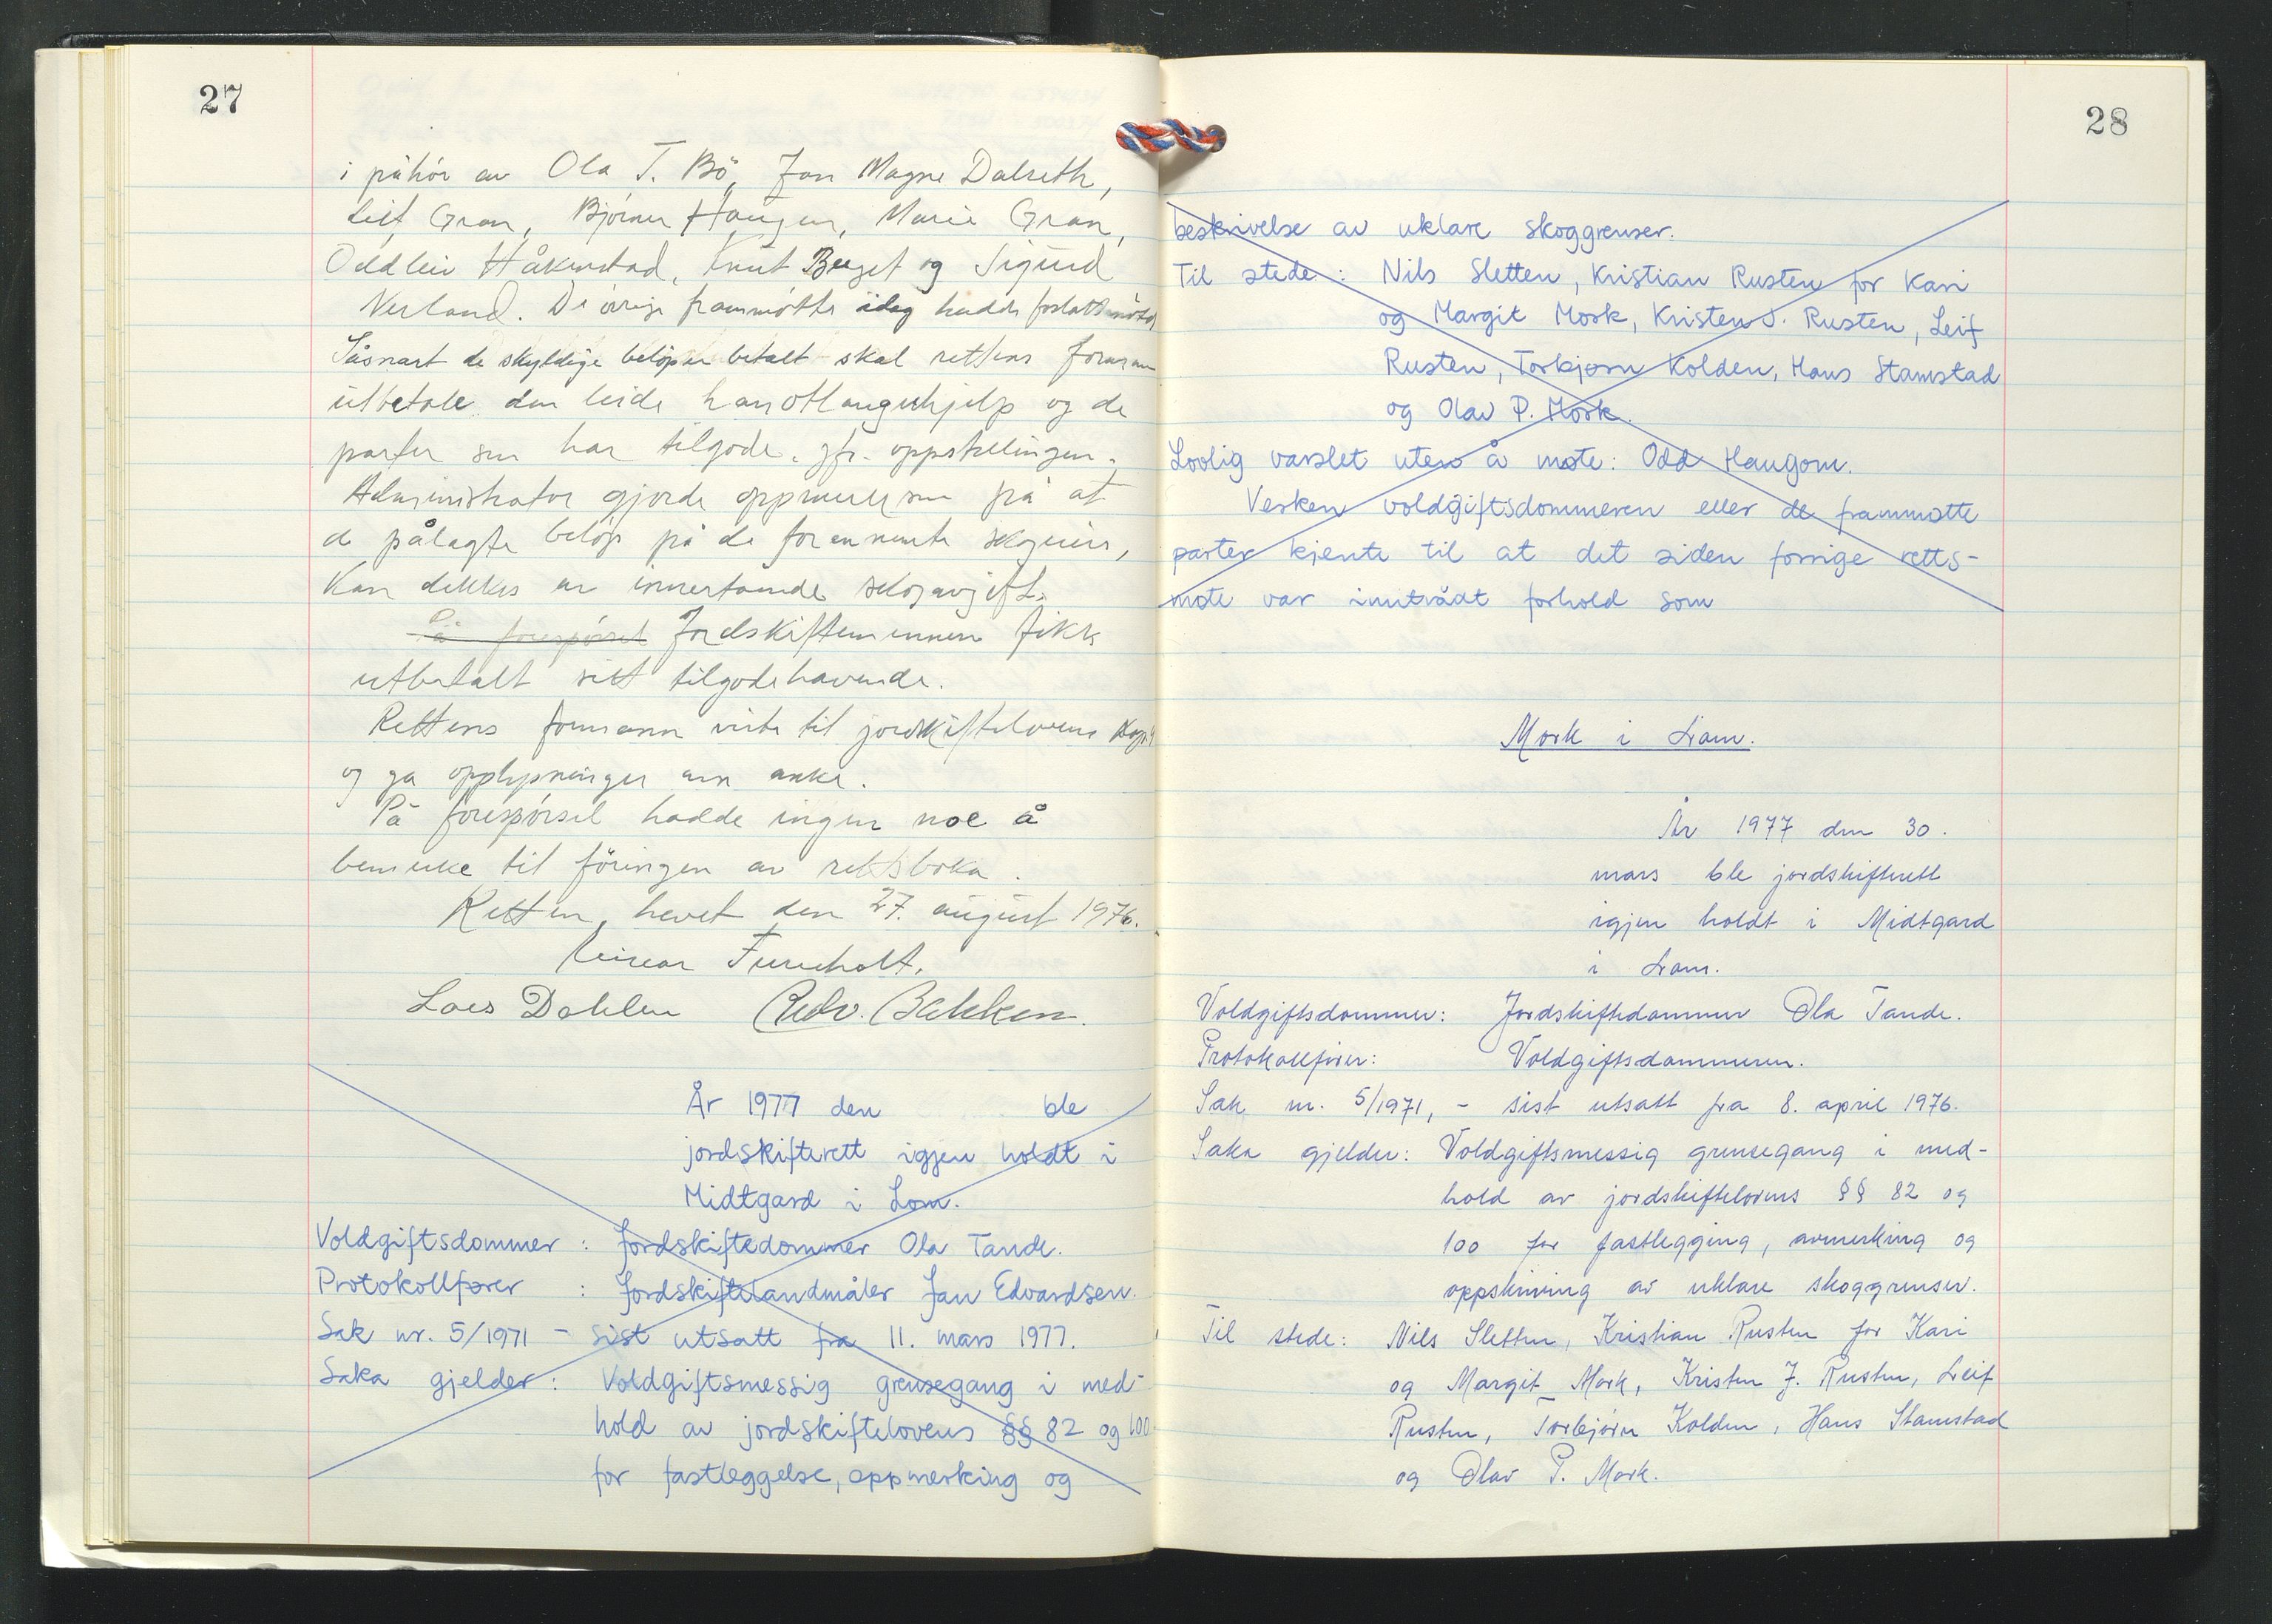 27
i påhör av Ola T. Bö, Jan Magne Dalseth,
Leif Gran, Bjørner Haugen, Marie Gran,
Oddleiv Håkenstad, Knut Berget og Sigurd
Nerland. De övrige frammötte idag hadde forlatt mötet
Såsnart de skyldige belöp er betalt skal rettens formann
utbetale den leide håndtlangerhjelp og de
parter som har tilgode, jfr. oppstillingen.
Administrator gjorde oppmerksom på at
de pålagte belöp på de forannevnte skogeiere,
kan dekkes av innestående skogavgift.
På forespörsel Jordskiftemennene fikk
utbetalt sitt tilgodehavende.
Rettens formann viste til jordskiftelovens kap.
og ga opplysninger om anke.
På forespörsel hadde ingen noe å
bemerke til föringen av rettsboka.
Retten hevet den 27. august 1976.
Einar Furuholt.
Lars Dahlen Edv. Bakken.
År 1977 den ble
jordskifterett igjen holdt i
Midtgard i Lom.
Voldgiftsdommer : Jordskiftedommer Ola Tande.
Protokollfører : Jordskiftelandmåler Jan Edvardsen.
Sak nr. 5/1971 - sist utsatt fra 11. mars 1977.
Saka gjelder : Voldgiftsmessig grensegang i med-
hold av jordskiftelovens §§ 82 og 100
for fastleggelse, oppmerking og
28
beskrivelse av uklare skoggrenser.
Til stede : Nils Sletten, Kristian Rusten for Kari
og Margit Mork, Kristen J. Rusten, Leif
Rusten, Torbjørn Kolden, Hans Stamstad
og Olav P. Mork.
Lovlig varslet uten å møte: Odd Haugom.
Verken voldgiftsdommeren eller de frammøtte
parter kjente til at det siden forrige retts-
møte var inntrådt forhold som
Mork i Lom.
År 1977 den 30.
mars ble jordskifterett
igjen holdt i Midtgard
i Lom.
Voldgiftsdommer: Jordskiftedommer Ola Tande.
Protokollfører: Voldgiftsdommeren.
Sak nr. 5/1971, - sist utsatt fra 8. april 1976.
Saka gjelder: Voldgiftsmessig grensegang i med-
hold av jordskiftelovens §§ 82 og
100 for fastlegging, avmerking og
oppskriving av uklare skoggrenser.
Til stede: Nils Sletten, Kristian Rusten for Kari
og Margit Mork, Kristen J. Rusten, Leif
Rusten, Torbjørn Kolden, Hans Stamstad
og Olav P. Mork.